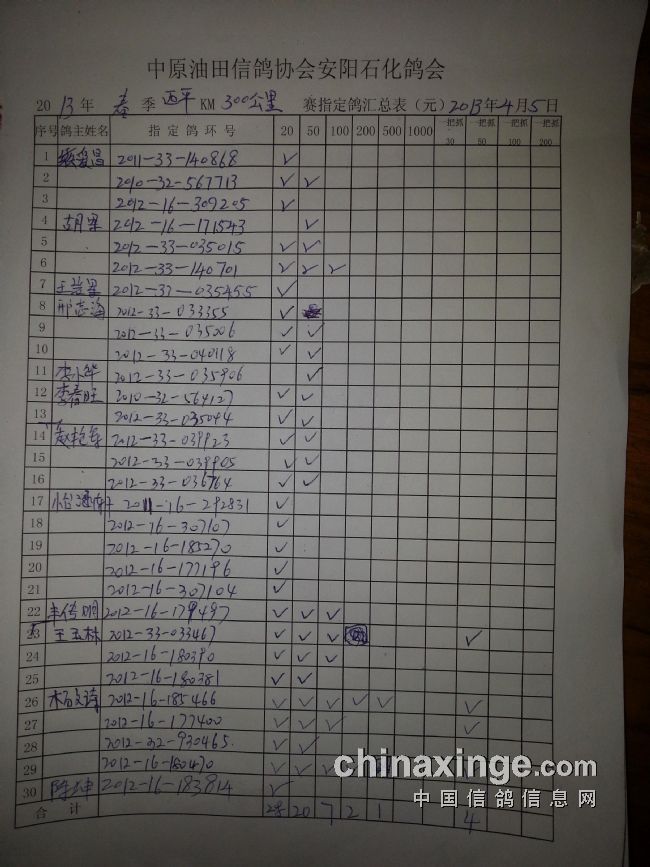 中原油田信鸽协会安阳石化鸽会
2013年 春 季 西平 KM 300公里 赛指定鸽汇总表（元）2013年4月5日
序号 鸽主姓名 指定鸽环号 20 50 100 200 500 1000 一把抓30 一把抓50 一把抓100 一把抓200
1 2011-33-140868 ✓
2 2010-32-567713 ✓ ✓
3 2012-16-309205 ✓
4 2012-16-171543 ✓
5 2012-33-035015 ✓ ✓
6 2012-33-140701 ✓ ✓ ✓
7 2012-33-035455 ✓
8 邢志海 2012-33-033355 ✓
9 2012-33-035006 ✓ ✓
10 2012-33-040118 ✓ ✓
11 李小华 2012-33-035906 ✓
12 李春旺 2010-32-564127 ✓ ✓
13 2012-33-035044 ✓ ✓
14 赵艳军 2012-33-039923 ✓ ✓
15 2012-33-039905 ✓ ✓
16 2012-33-036764 ✓ ✓
17 2011-16-292831 ✓
18 2012-16-307107 ✓
19 2012-16-185270 ✓
20 2012-16-177196 ✓
21 2012-16-307104 ✓
22 2012-16-179497 ✓ ✓ ✓
23 王玉林 2012-33-033467 ✓ ✓ ✓ ✓
24 2012-16-180390 ✓ ✓ ✓
25 2012-16-180381 ✓ ✓
26 杨文琦 2012-16-185466 ✓ ✓ ✓ ✓ ✓ ✓
27 2012-16-177400 ✓ ✓ ✓ ✓
28 2012-32-930465 ✓ ✓
29 2012-16-180470 ✓ ✓ ✓
30 陈坤 2012-16-183814 ✓
合计 28 20 7 2 1 4
chinaxinge.com
中国信鸽信息网